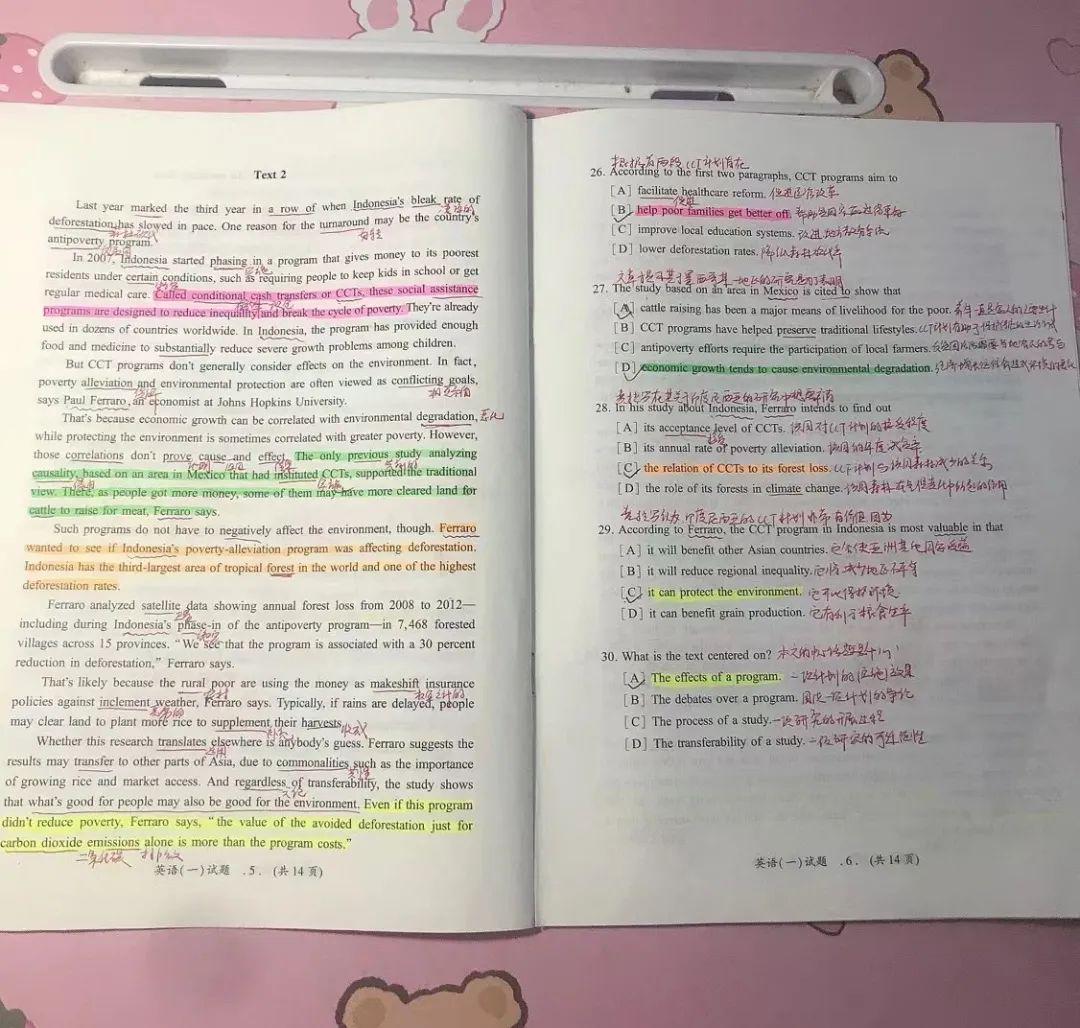 Text 2
Last year marked the third year in a row of when Indonesia's bleak rate of
deforestation has slowed in pace. One reason for the turnaround may be the country's
antipoverty program.
In 2007, Indonesia started phasing in a program that gives money to its poorest
residents under certain conditions, such as requiring people to keep kids in school or get
regular medical care. Called conditional cash transfers or CCTs, these social assistance
programs are designed to reduce inequality and break the cycle of poverty. They're already
used in dozens of countries worldwide. In Indonesia, the program has provided enough
food and medicine to substantially reduce severe growth problems among children.
But CCT programs don't generally consider effects on the environment. In fact,
poverty alleviation and environmental protection are often viewed as conflicting goals,
says Paul Ferraro, an economist at Johns Hopkins University.
That's because economic growth can be correlated with environmental degradation, 恶化
while protecting the environment is sometimes correlated with greater poverty. However,
those correlations don't prove cause and effect. The only previous study analyzing
causality, based on an area in Mexico that had instituted CCTs, supported the traditional
view. There, as people got more money, some of them may have more cleared land for
cattle to raise for meat, Ferraro says.
Such programs do not have to negatively affect the environment, though. Ferraro
wanted to see if Indonesia's poverty-alleviation program was affecting deforestation.
Indonesia has the third-largest area of tropical forest in the world and one of the highest
deforestation rates.
Ferraro analyzed satellite data showing annual forest loss from 2008 to 2012—
including during Indonesia's phase-in of the antipoverty program—in 7,468 forested
villages across 15 provinces. “We see that the program is associated with a 30 percent
reduction in deforestation,” Ferraro says.
That's likely because the rural poor are using the money as makeshift insurance
policies against inclement weather, Ferraro says. Typically, if rains are delayed, people
may clear land to plant more rice to supplement their harvests.
收成
Whether this research translates elsewhere is anybody's guess. Ferraro suggests the
results may transfer to other parts of Asia, due to commonalities such as the importance
of growing rice and market access. And regardless of transferability, the study shows
that what's good for people may also be good for the environment. Even if this program
didn't reduce poverty, Ferraro says, “the value of the avoided deforestation just for
carbon dioxide emissions alone is more than the program costs.”
二氧化碳 排放
英语(一)试题 .5. (共14页)
根据前两段,CCT计划旨在
26. According to the first two paragraphs, CCT programs aim to
[A] facilitate healthcare reform. 促进医疗改革
[B] help poor families get better off.
[C] improve local education systems. 改进地方教育系统
[D] lower deforestation rates. 降低森林砍伐率
27. The study based on an area in Mexico is cited to show that
[A] cattle raising has been a major means of livelihood for the poor.
[B] CCT programs have helped preserve traditional lifestyles.
[C] antipoverty efforts require the participation of local farmers.
[D] economic growth tends to cause environmental degradation.
28. In his study about Indonesia, Ferraro intends to find out
[A] its acceptance level of CCTs. 该国对CCT计划的接受程度
[B] its annual rate of poverty alleviation. 该国的年度减贫率
[C] the relation of CCTs to its forest loss. CCT计划与该国森林减少的关系
[D] the role of its forests in climate change. 该国森林在气候变化中所起的作用
29. According to Ferraro, the CCT program in Indonesia is most valuable in that
[A] it will benefit other Asian countries. 它会使亚洲其他国家受益
[B] it will reduce regional inequality. 它将减少地区不平等
[C] it can protect the environment. 它可以保护环境
[D] it can benefit grain production. 它有利于粮食生产
30. What is the text centered on? 本文的中心话题是什么
[A] The effects of a program.
[B] The debates over a program. 围绕一项计划的争论
[C] The process of a study. 一项研究的开展过程
[D] The transferability of a study.
英语(一)试题 .6. (共14页)